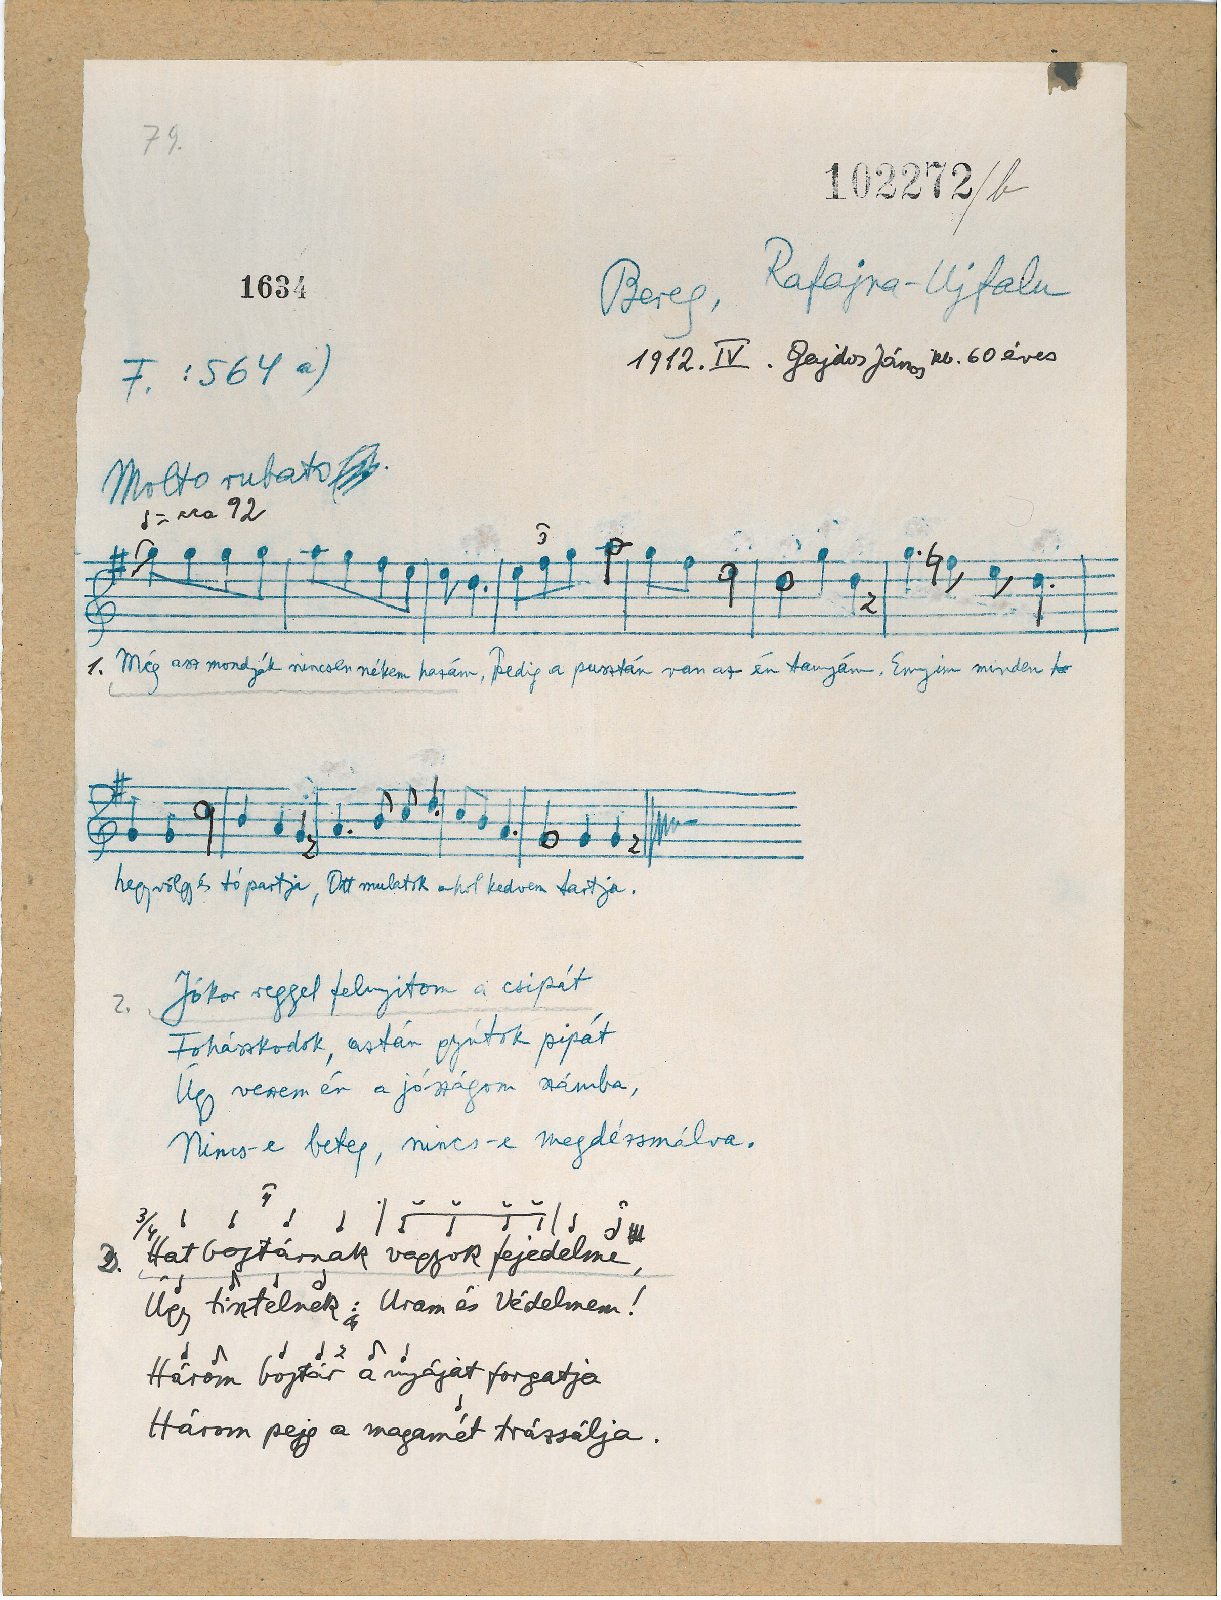 79.
102272/b
1634
Bereg, Rafajna-Ujfalu
1912. IV. Gajdos János kb. 60 éves
F. : 564 a)
Molto rubato
92
3
1. Még azt mondják nincsen nékem hazám, Pedig a pusztán van az én tanyám. Ennyim minden
hegy völgy és tó partja, Ott mulatok ahol kedvem tartja.
2. Jókor reggel felnyitom a csipát
Fohászkodok, aztán gyútok pipát
Úgy veszem én a jószágom számba,
Nincs-e beteg, nincs-e megdézsmálva.
3/4
3. Hat bojtárnak vagyok fejedelme,
Úgy tisztelnek: Uram és Védelmem!
Három bojtár a nyáját forgatja
Három pejg a magamét trázsálja.